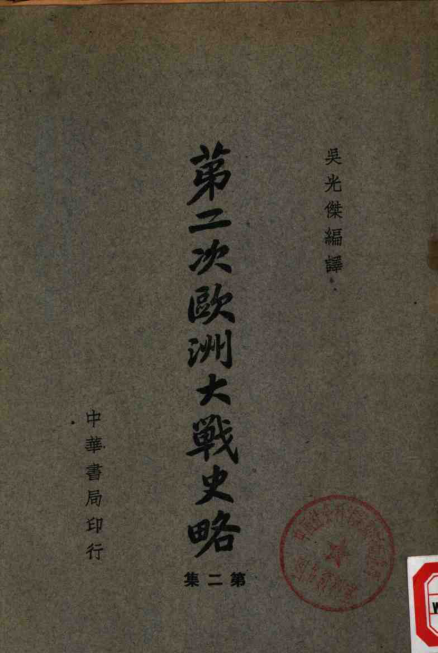 吳光傑編譯
第二次歐洲大戰史略
第二集
中華書局印行